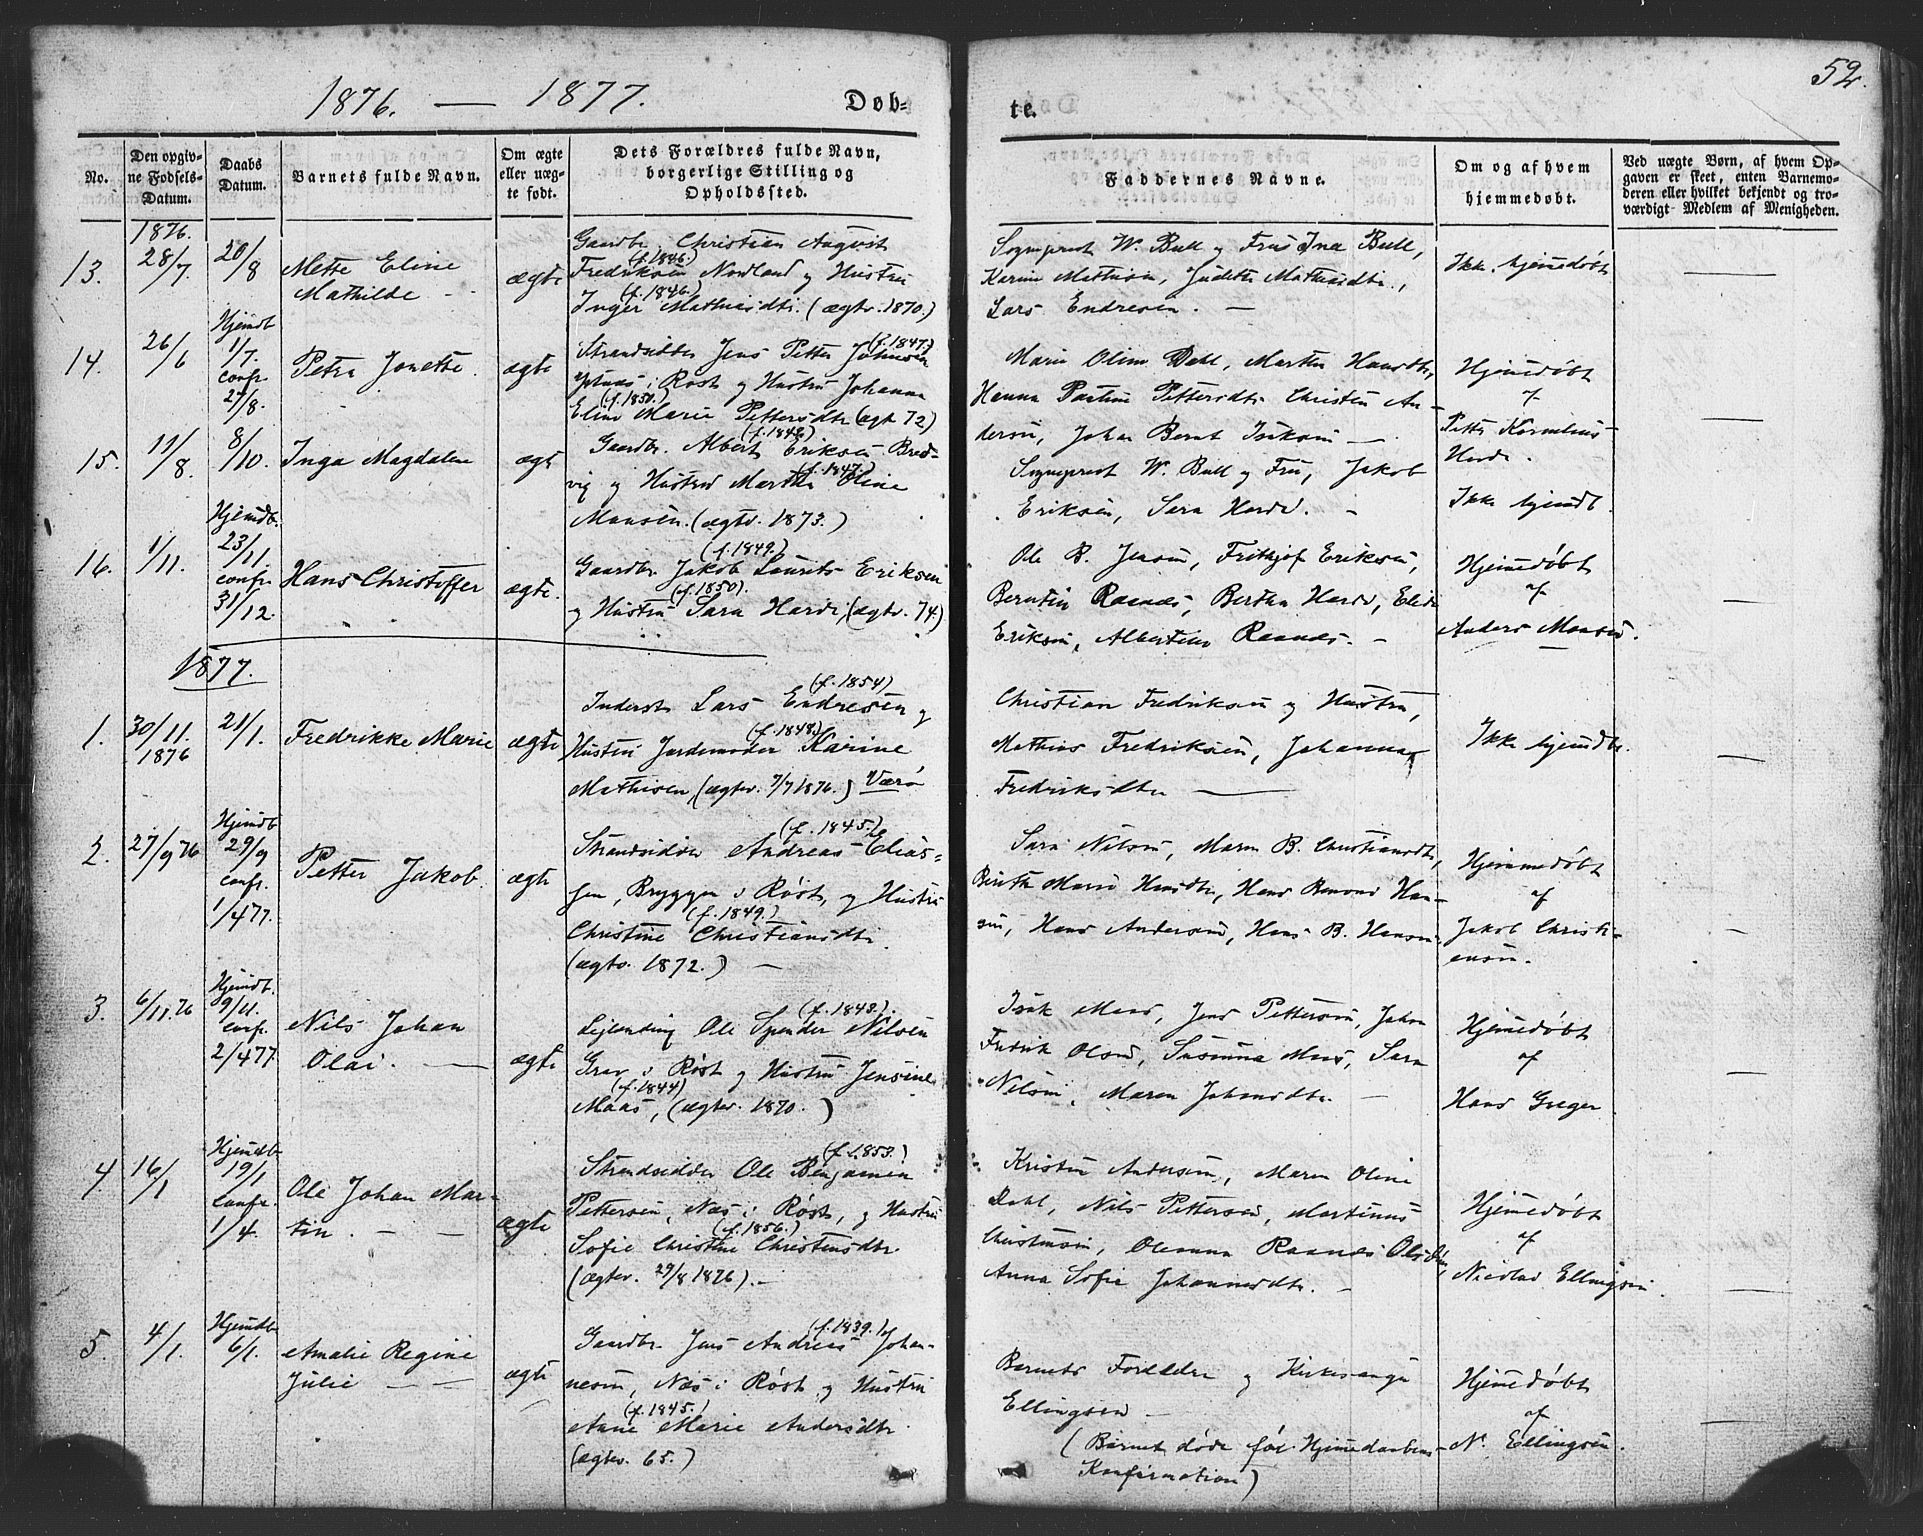 1876. — 1877.
Døb-
te.
52.
No.
Den opgiv-
ne Fødsels-
Datum.
Daabs
Datum.
Barnets fulde Navn.
Om ægte
eller uæg-
te født.
Dets Forældres fulde Navn,
borgerlige Stilling og
Opholdssted.
Faddernes Navne.
Om og af hvem
hjemmedøbt.
Ved uægte Børn, af hvem Op-
gaven er skeet, enten Barnemo-
deren eller hvilket bekjendt og tro-
værdigt Medlem af Menigheden.
1876.
13.
28/7
20/8
Mette Eline
Mathilde -
ægte
Gaardbr. Christian August
(f. 1846.)
Fredriksen Nordland og Hustru
(f. 1846.)
Inger Mathiasdtr. (ægtv. 1870.)
Sogneprest W. Bull og Frue Ina Bull,
Karine Mathisen, Judith Mathiasdtr.,
Lars Endresen. —
Ikke hjemedøbt
—
14.
26/6
Hjemdbt
1/7.
confr.
27/8.
Petra Jonette.
ægte
(f. 1847.)
Strandsidder Jens Petter Johnsen
i Røst og Hustru Johanna
(f. 1850.)
Eline Marie Pettersdtr (ægt 72)
Marie Oline Dahl, Marthe Hansdtr,
Hanna Pettersdtr Christen An-
dersen, Johan Bernt Isaksen —
Hjemedøbt
af
Petter Kornelius
—
15.
11/8.
8/10.
Inga Magdalene
ægte
(f. 1848)
Gaardbr. Albert Eriksen Bred-
(f. 1847.)
vig og Hustru Marthe Oline
Monsen. (ægtv. 1873.)
Sogneprest W. Bull og Fru, Jakob
Eriksen, Sara Harde. -
Ikke hjemdbt.
16.
1/11.
Hjemdb.
23/11.
confr.
31/12.
Hans Christoffer
ægte.
(f. 1849.)
Gaardbr. Jakob Laurits Eriksen
(f. 1850).
og Hustru Sara Harde, (ægtv. 74.)
Ole B. Jensen, Frithjof Eriksen,
Berntin Raanes, Bertha Harde,
Eriksen, Albertine Raanes. -
Hjemedøbt
af
Anders Monsen.
—
1877.
1.
30/11.
1876
21/1.
Fredrikke Marie
ægte
(f. 1854)
Inderst Lars Endresen og
(f. 1848.)
Hustru Jordemoder Karine
Mathisen, (ægtev. 7/7 1876.) Værø
Christian Fredriksen og Hustru,
Mathias Fredriksen, Johanna
Fredriksdtr —
Ikke hjemdbt.
—
2.
27/9 76
Hjemdb
29/9
confr.
1/4 77.
Petter Jakob.
ægte
(f. 1845.)
Strandsidder Andreas Elias-
sen, Bryggen i Røst, og Hustru
(f. 1849.)
Christine Christiansdtr.
(ægtv. 1872.) —
Sara Nilsen, Maren B. Christiansdtr,
Berith Marie Hansdtr, Hans Han-
sen, Hans Andersen, Hans B. Hansen
Hjemmedøbt
af
Jakob Christi-
ensen.
—
3.
6/11 76
Hjemdb.
9/11.
confr.
2/4 77.
Nils Johan
Olai. —
ægte
(f. 1843).
Leilending Ole Nilsen
i Røst og Hustru Jensine
(f. 1844)
Maas, (ægtev. 1870.)
Isak Maas, Jens Pettersen, Johan
Fredrik Olsen, Susanna Maas, Sara
Nilsen, Maren Johansdtr. -
Hjemedøbt
af
Hans Greger.
—
4.
16/1
Hjemdb
19/1
Confr.
1/4.
Ole Johan Mar-
tin. - -
ægte
(f. 1853.)
Strandsidder Ole Benjamin
Pettersen, Næs i Røst, og Hustru
(f. 1856.)
Sofie Christine Christensdtr.
(ægtev. 29/8 1876). -
Kristen Andersen, Maren Oline
Dahl, Nils Pettersen, Martinus
Christensen, Raanes
Anna Sofie Johannesdtr. -
Hjemedøbt
af
Nicolai Ellingsen.
—
5.
4/1.
Hjemdb
6/1.
Amalie Regine
Julie — —
ægte
(f. 1839.)
Gaardbr. Jens Andreas Johan-
nesen, Næs i Røst og Hustru
(f. 1845.)
Anne Marie Andersdtr.
(ægtev. 65.)
Barnets Forældre og Kirkesanger
Ellingsen —
(Barnet døde før Hjemedaabens
Konfirmation)
Hjemedøbt
af
N. Ellingsen.
—